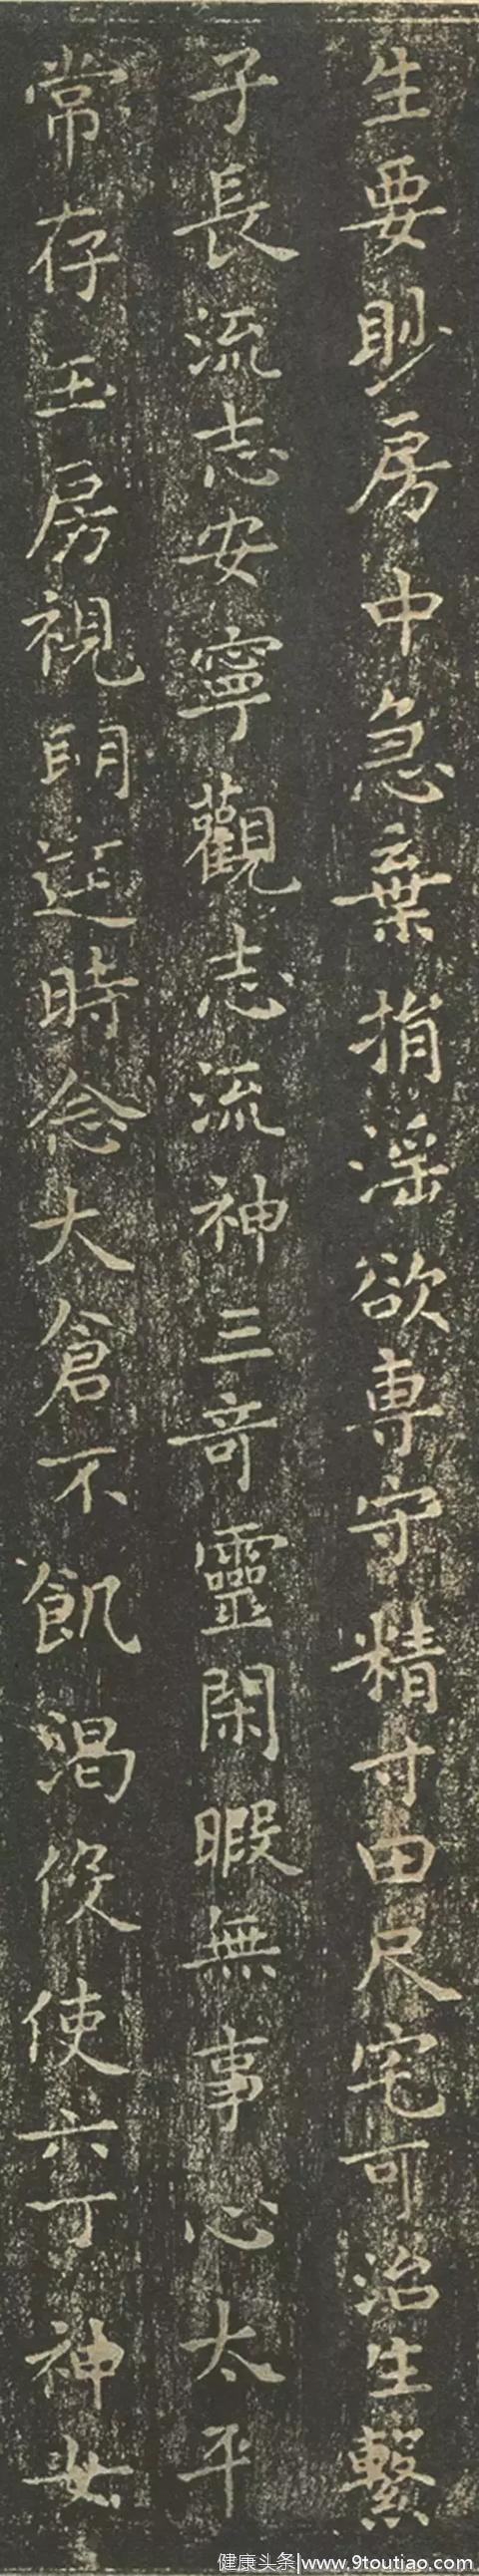 生要眇房中急棄捐淫欲專守精寸田尺宅可治生繫
子長流志安寧觀志流神三奇靈閑暇無事心太平
常存玉房視明達時念大倉不飢渴役使六丁神女
健康头条/www.9toutiao.com